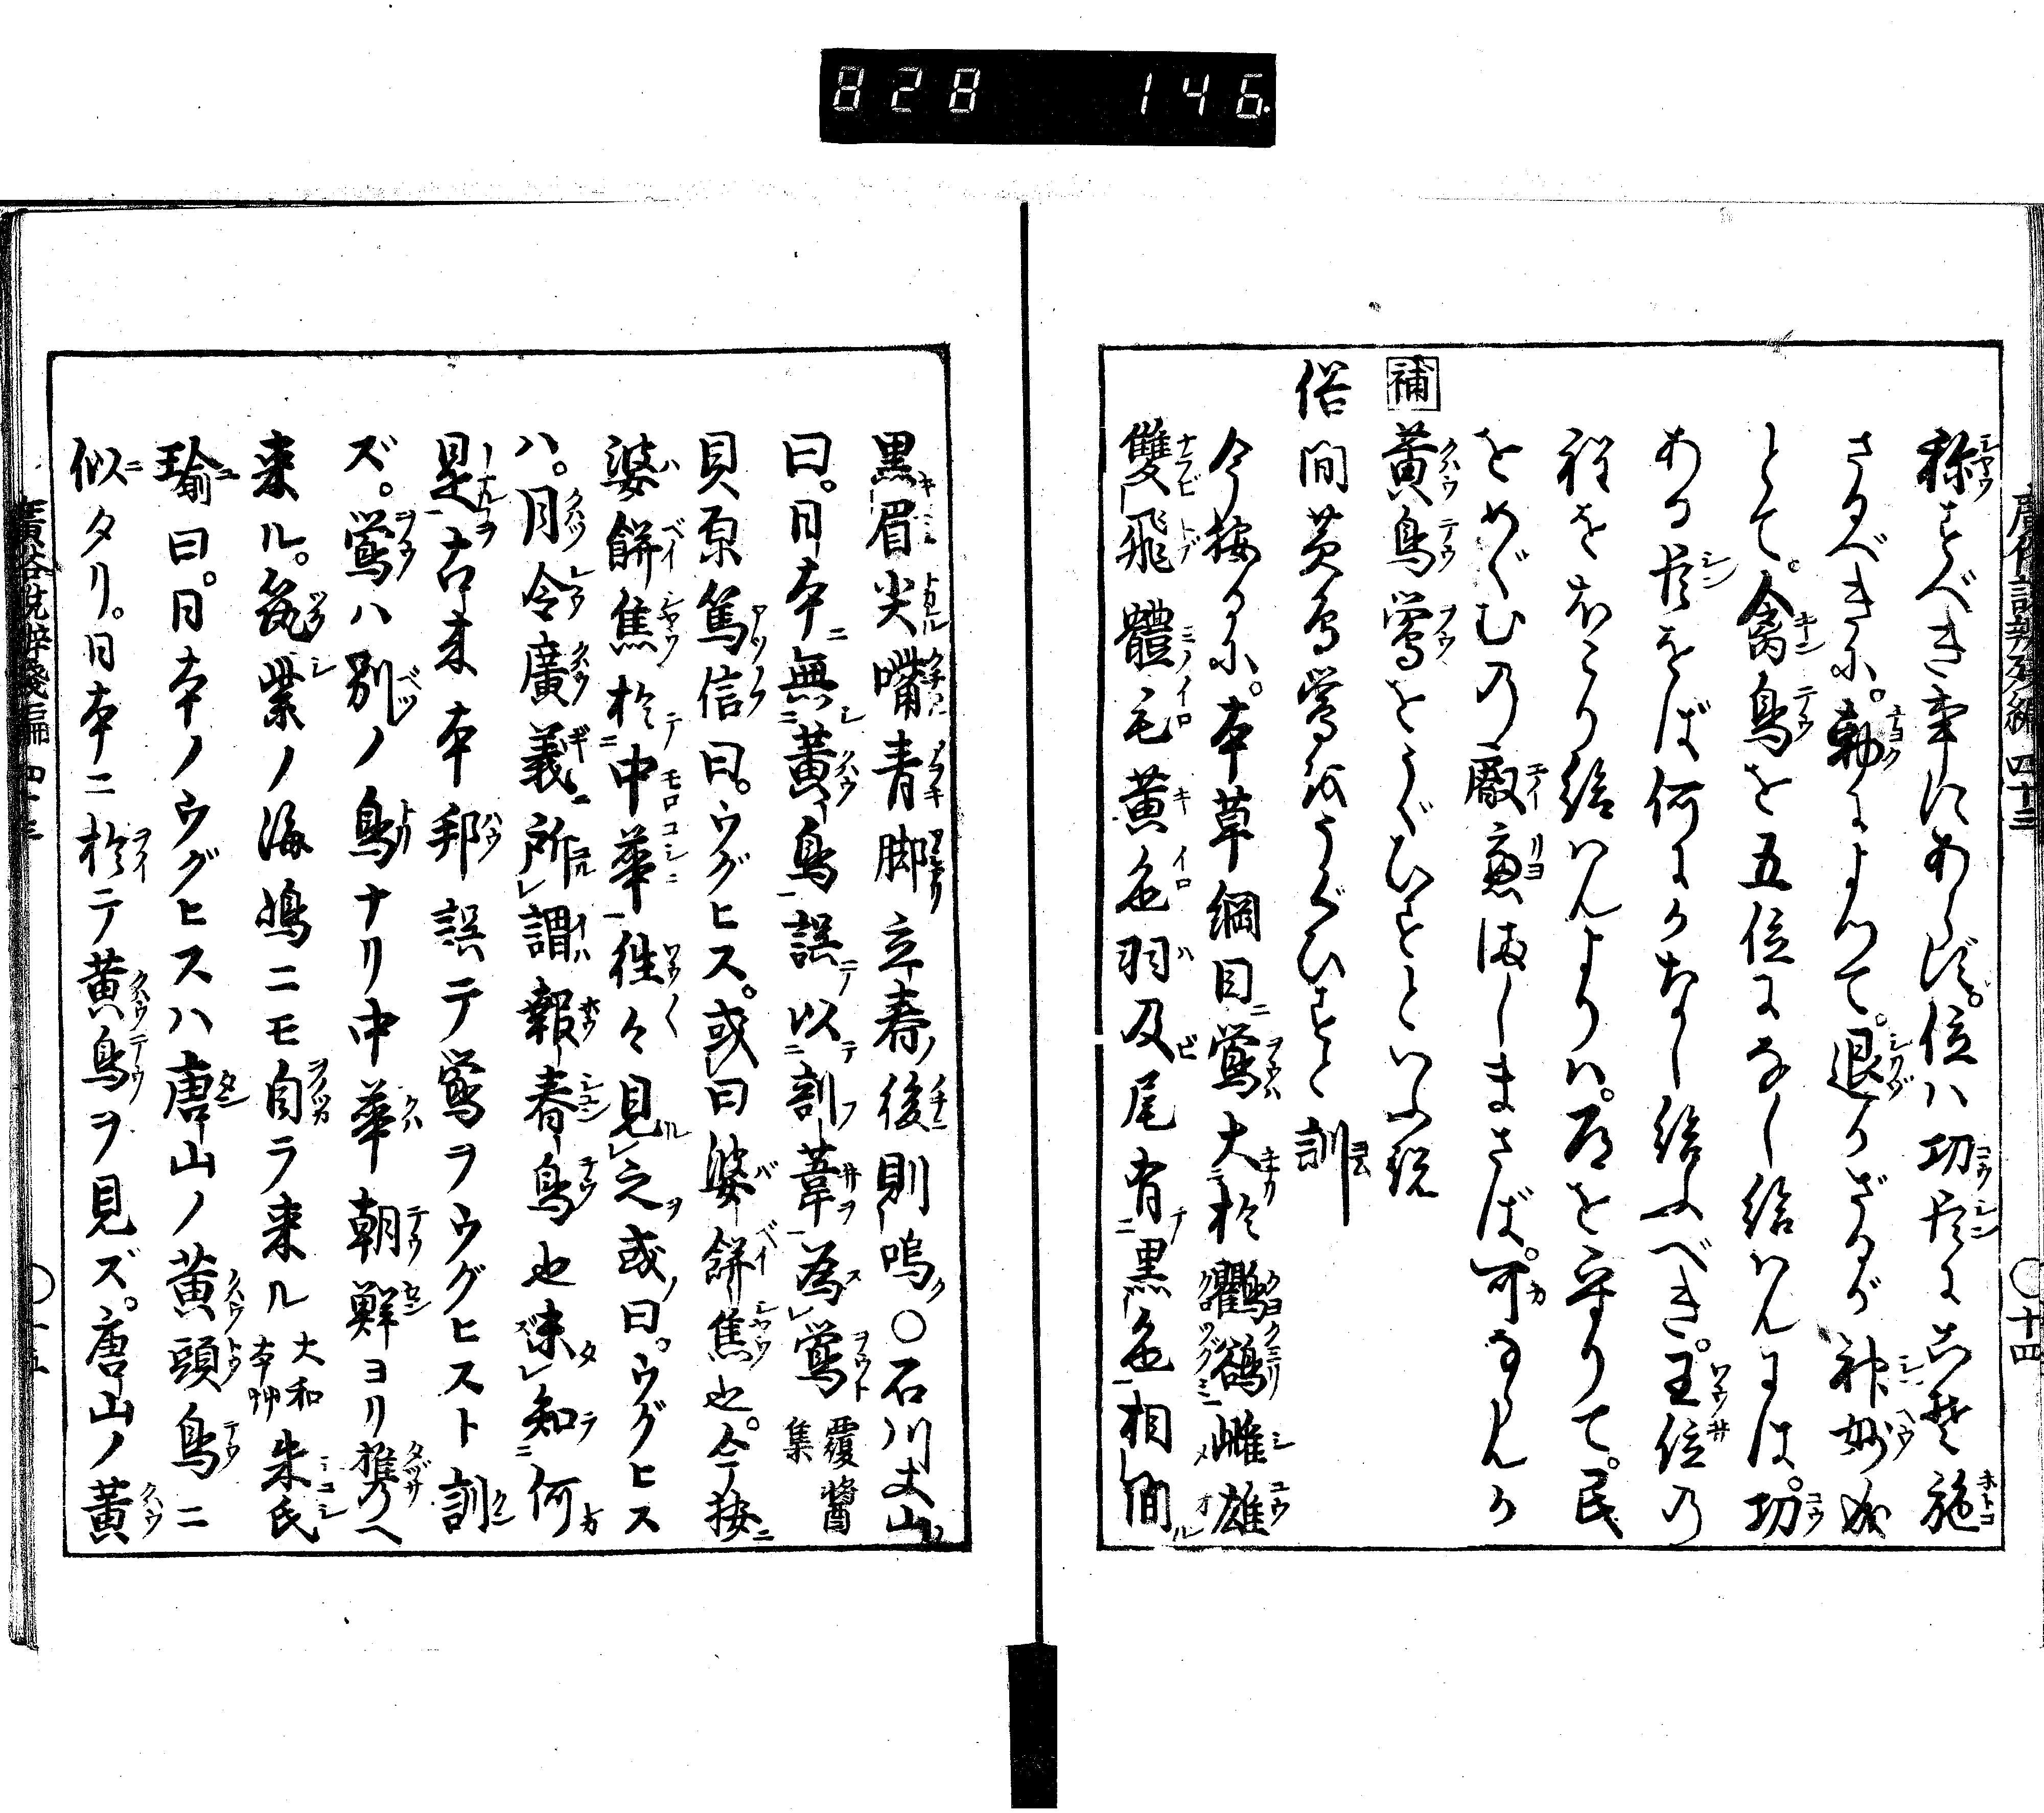 828 146
廣俗説辨殘編 四十三 〇十四
稱すべき事にあらず。位ハ功臣にこそ施
さるべきに。勅によつて。退かざるが神妙成
とて。禽鳥を五位になし給はんには。功
ある臣をば何にかなし給ふべき。王位の
程をおとり給はんよりハ。君を守りて。民
をめぐむの叡慮ましまさば。可ならんか
補 黄鳥鶯をうぐひすといふ説
俗間黄鳥鶯をうぐひすと訓
今按るに。本草綱目ニ鶯大於鸜鵒雌雄
雙飛體毛黄色羽及尾有黒色相間
黒眉尖嘴青脚立春後則鳴〇石川丈山
曰。日本ニ無黄鳥誤テ以訓葦為鶯 覆醬集
貝原篤信曰。ウグヒス。或曰婆餅焦也。今按ニ
婆餅焦於中華往々見之或曰。ウグヒス
ハ。月令廣義ニ所謂報春鳥也未知何
是古来本邦誤テ鶯ヲウグヒスト訓
ズ。鶯ハ別ノ鳥ナリ中華朝鮮ヨリ携ヘ
来ル。筑紫ノ海嶋ニモ自ラ来ル 大和本艸 朱氏
瑜曰。日本ノウグヒスハ唐山ノ黄頭鳥ニ
似タリ。日本ニ於テ黄鳥ヲ見ズ。唐山ノ黄
廣俗説辨殘編 四十三